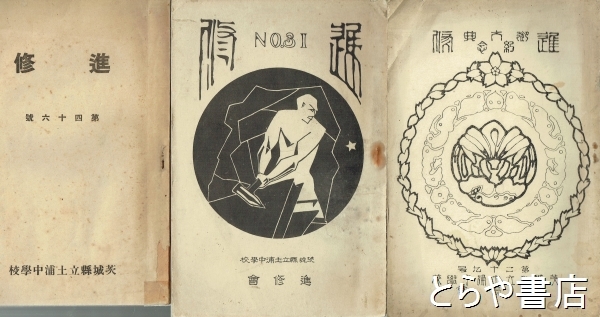 修進
號六十四第
校學中浦土立縣城茨
修進
NO.31
校學中浦土立縣城茨
會修進
修 典大御 進
念紀
號九十二第
とらや書店